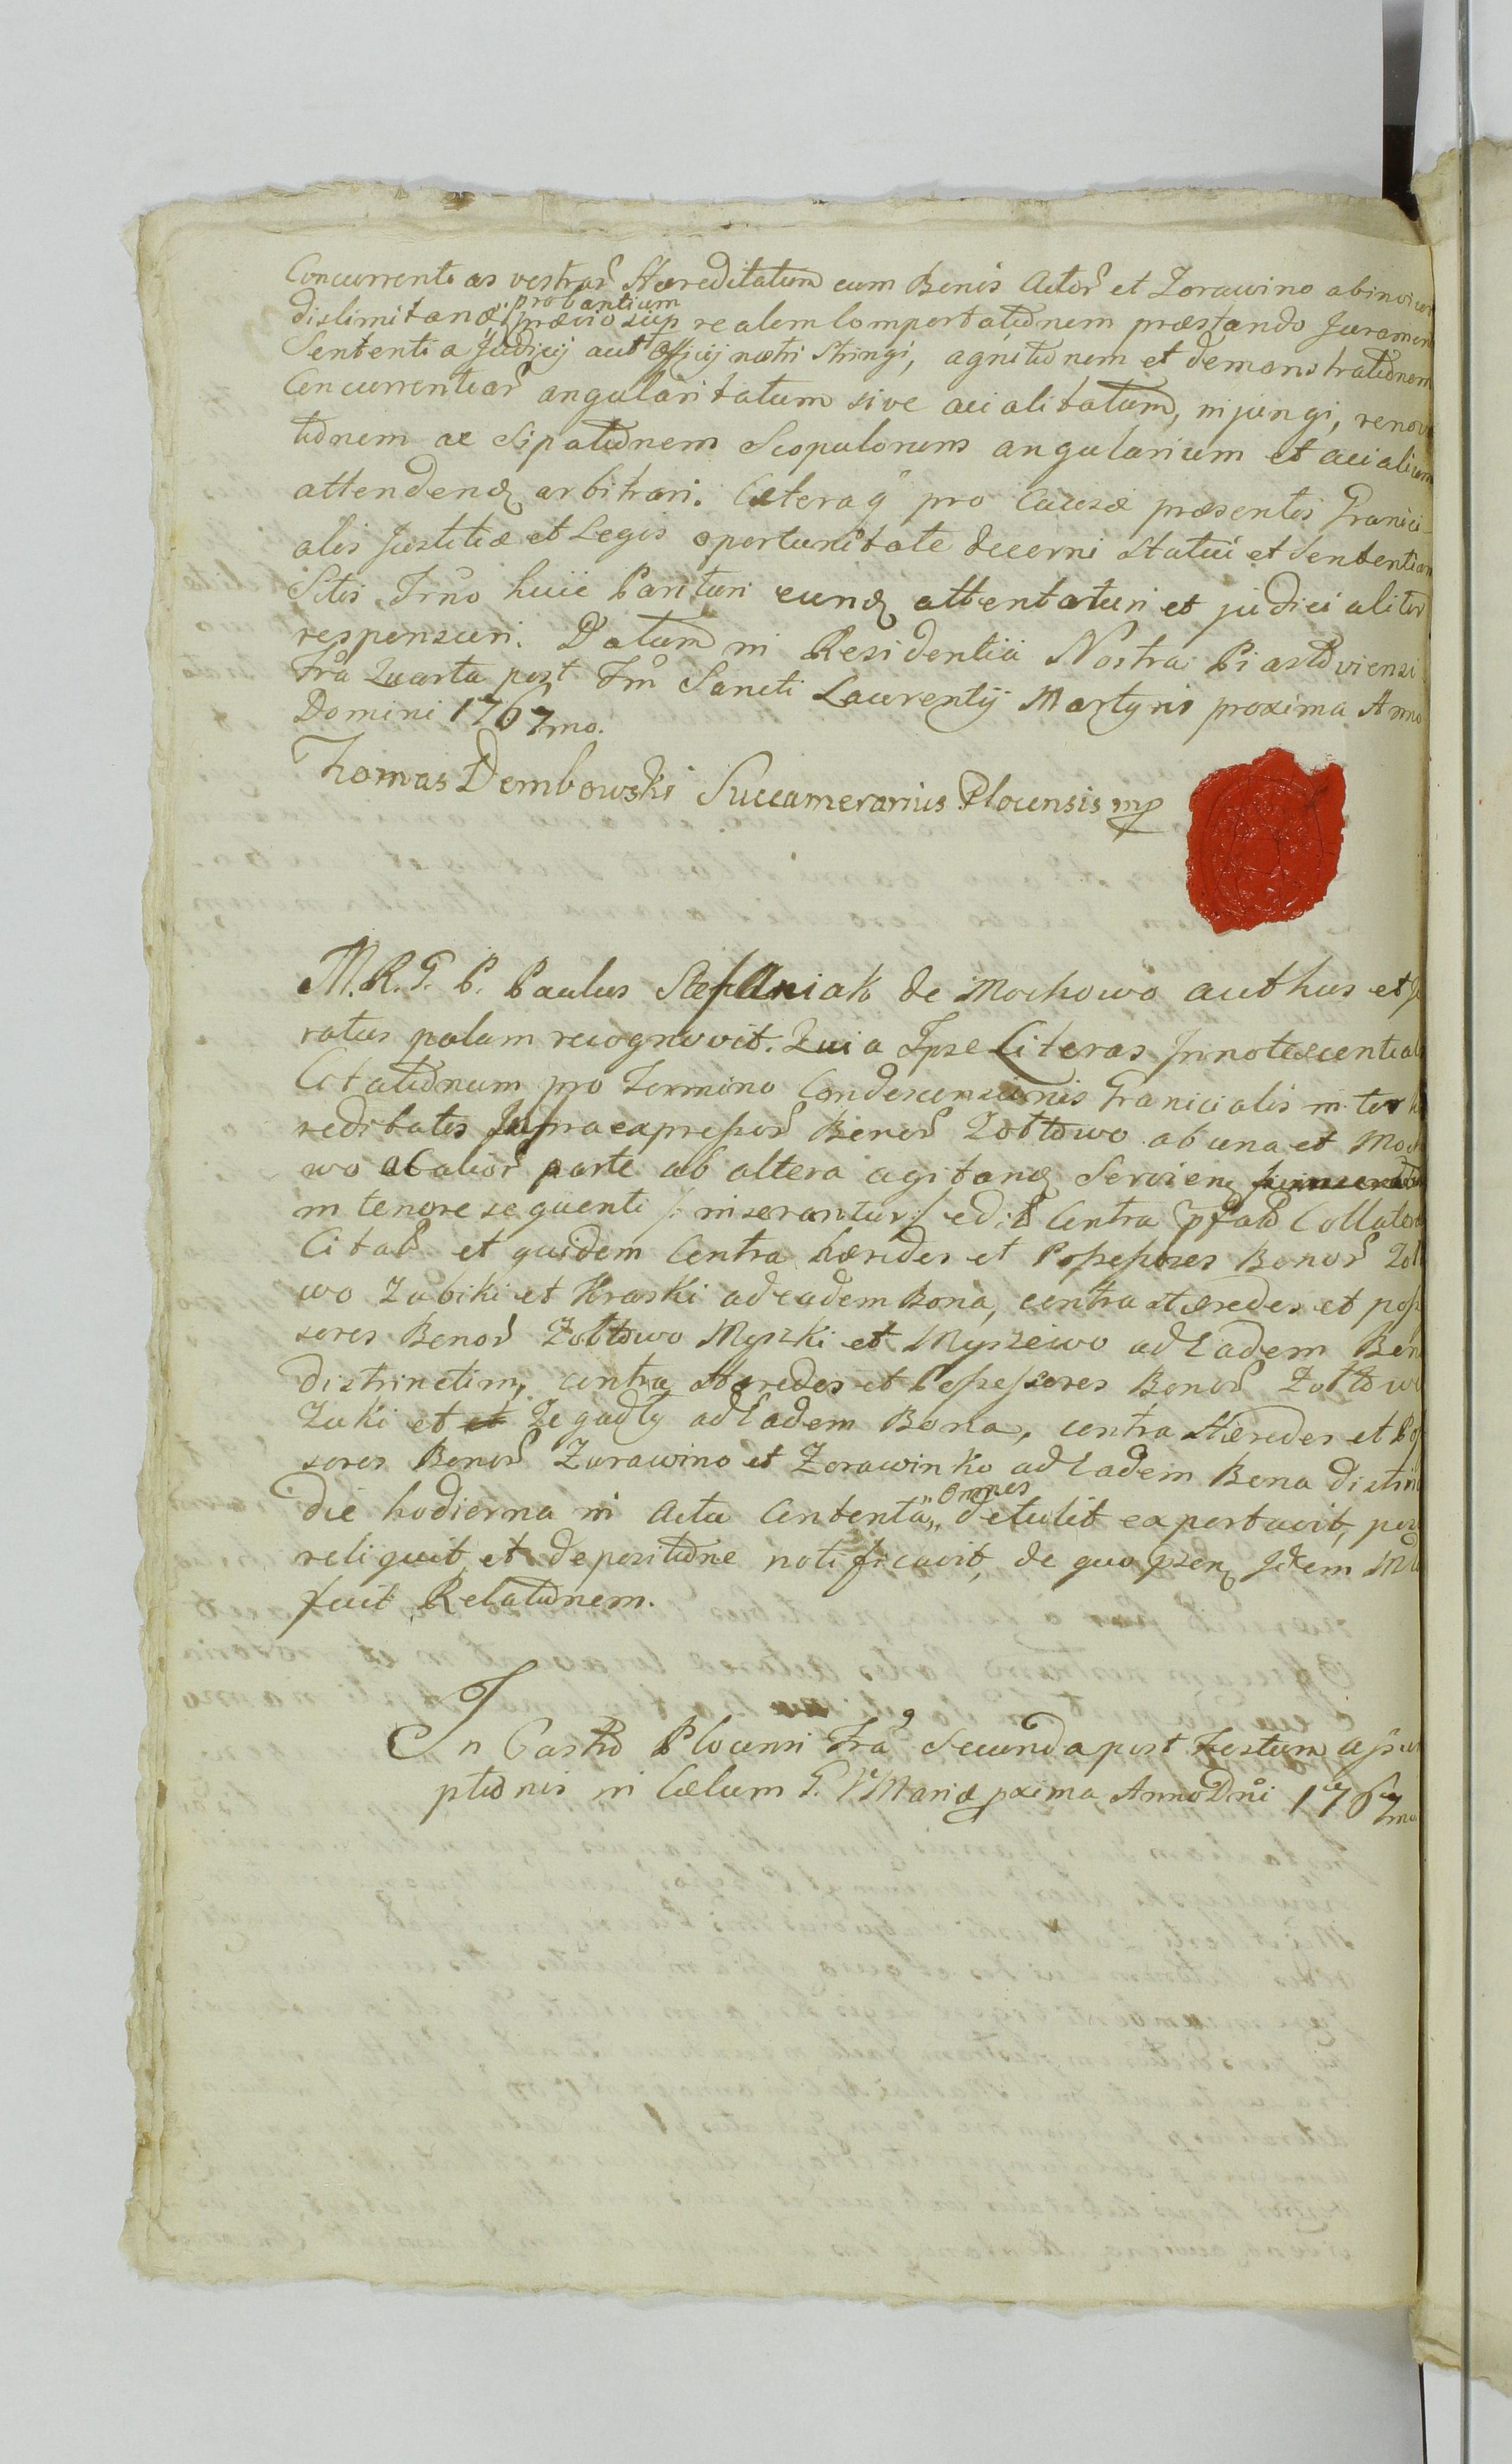 Concurrentias vestrar Hæreditatum cum Bonis Actor et Zorawino abinvicem
dislimitanæ probantium prævio sup realem Comportationem præstando Juramen
Sententia Judicij aut Officij nostri Stringi, agnitionem et demonstrationem
Concurrentiar angularitatum sive acialitatum, injungi, renova
tionem ac Sipationem Scopulorum angularium et acialium
attendenq arbitrari. Cæteraq pro Causæ præsentis Granici
alis Justitiæ et Legis oportunitate decerni Statui et Sententiam
Sitis Trno huic Parituri eunq attentaturi et judicialiter
responsuri. Datum in Residentia Nostra Piastoviensi
Fra Quarta post Fm Sancti Laurentij Martyris proxima Anno
Domini 1767mo.
Thomas Dembowski Succamerarius Plocensis mp
M. R. G. P. Paulus Stefaniak de Mochowo authus et Ju
ratus palam recognovit. Quia Ipse Literas Innotescential
Citationum pro Termino Condescensionis Granicialis inter hæ
reditates supra expressor Bonor Zołtowo ab una et Moch
wo ac alior parte ab altera agitanq Servien
in tenore sequenti /: inserantur :/ edit Contra pfatos Collater
Citatos et quidem Contra hæredes et Possessores Bonor Zoł
wo Zabiki et Kraski ad eadem Bona, contra Hæredes et poss
sores Bonor Zołtowo Myszki et Myszewo ad Eadem Bon
distinctim, contra Hæredes et Possessores Bonor Zołtow
Zuki et et Zegadły ad Eadem Bona, contra Hæredes et Pos
sores Bonor Zurawino et Zorawinko ad Eadem Bona distin
die hodierna in Actu Contenta, omnes detulit exportavit, pos
reliquit et de positione notificavit, de quo psen Idem M
fecit Relationem.
In Castro Plocensi Fra Secunda post Festum Assum
ptionis in Cælum G. V Mariæ pxima Anno Dni 1767mo